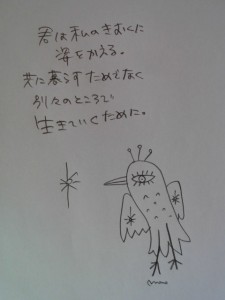 君は私のきおくに
姿をかえる。
共に暮らすためでなく
別々のところで
生きていくために。